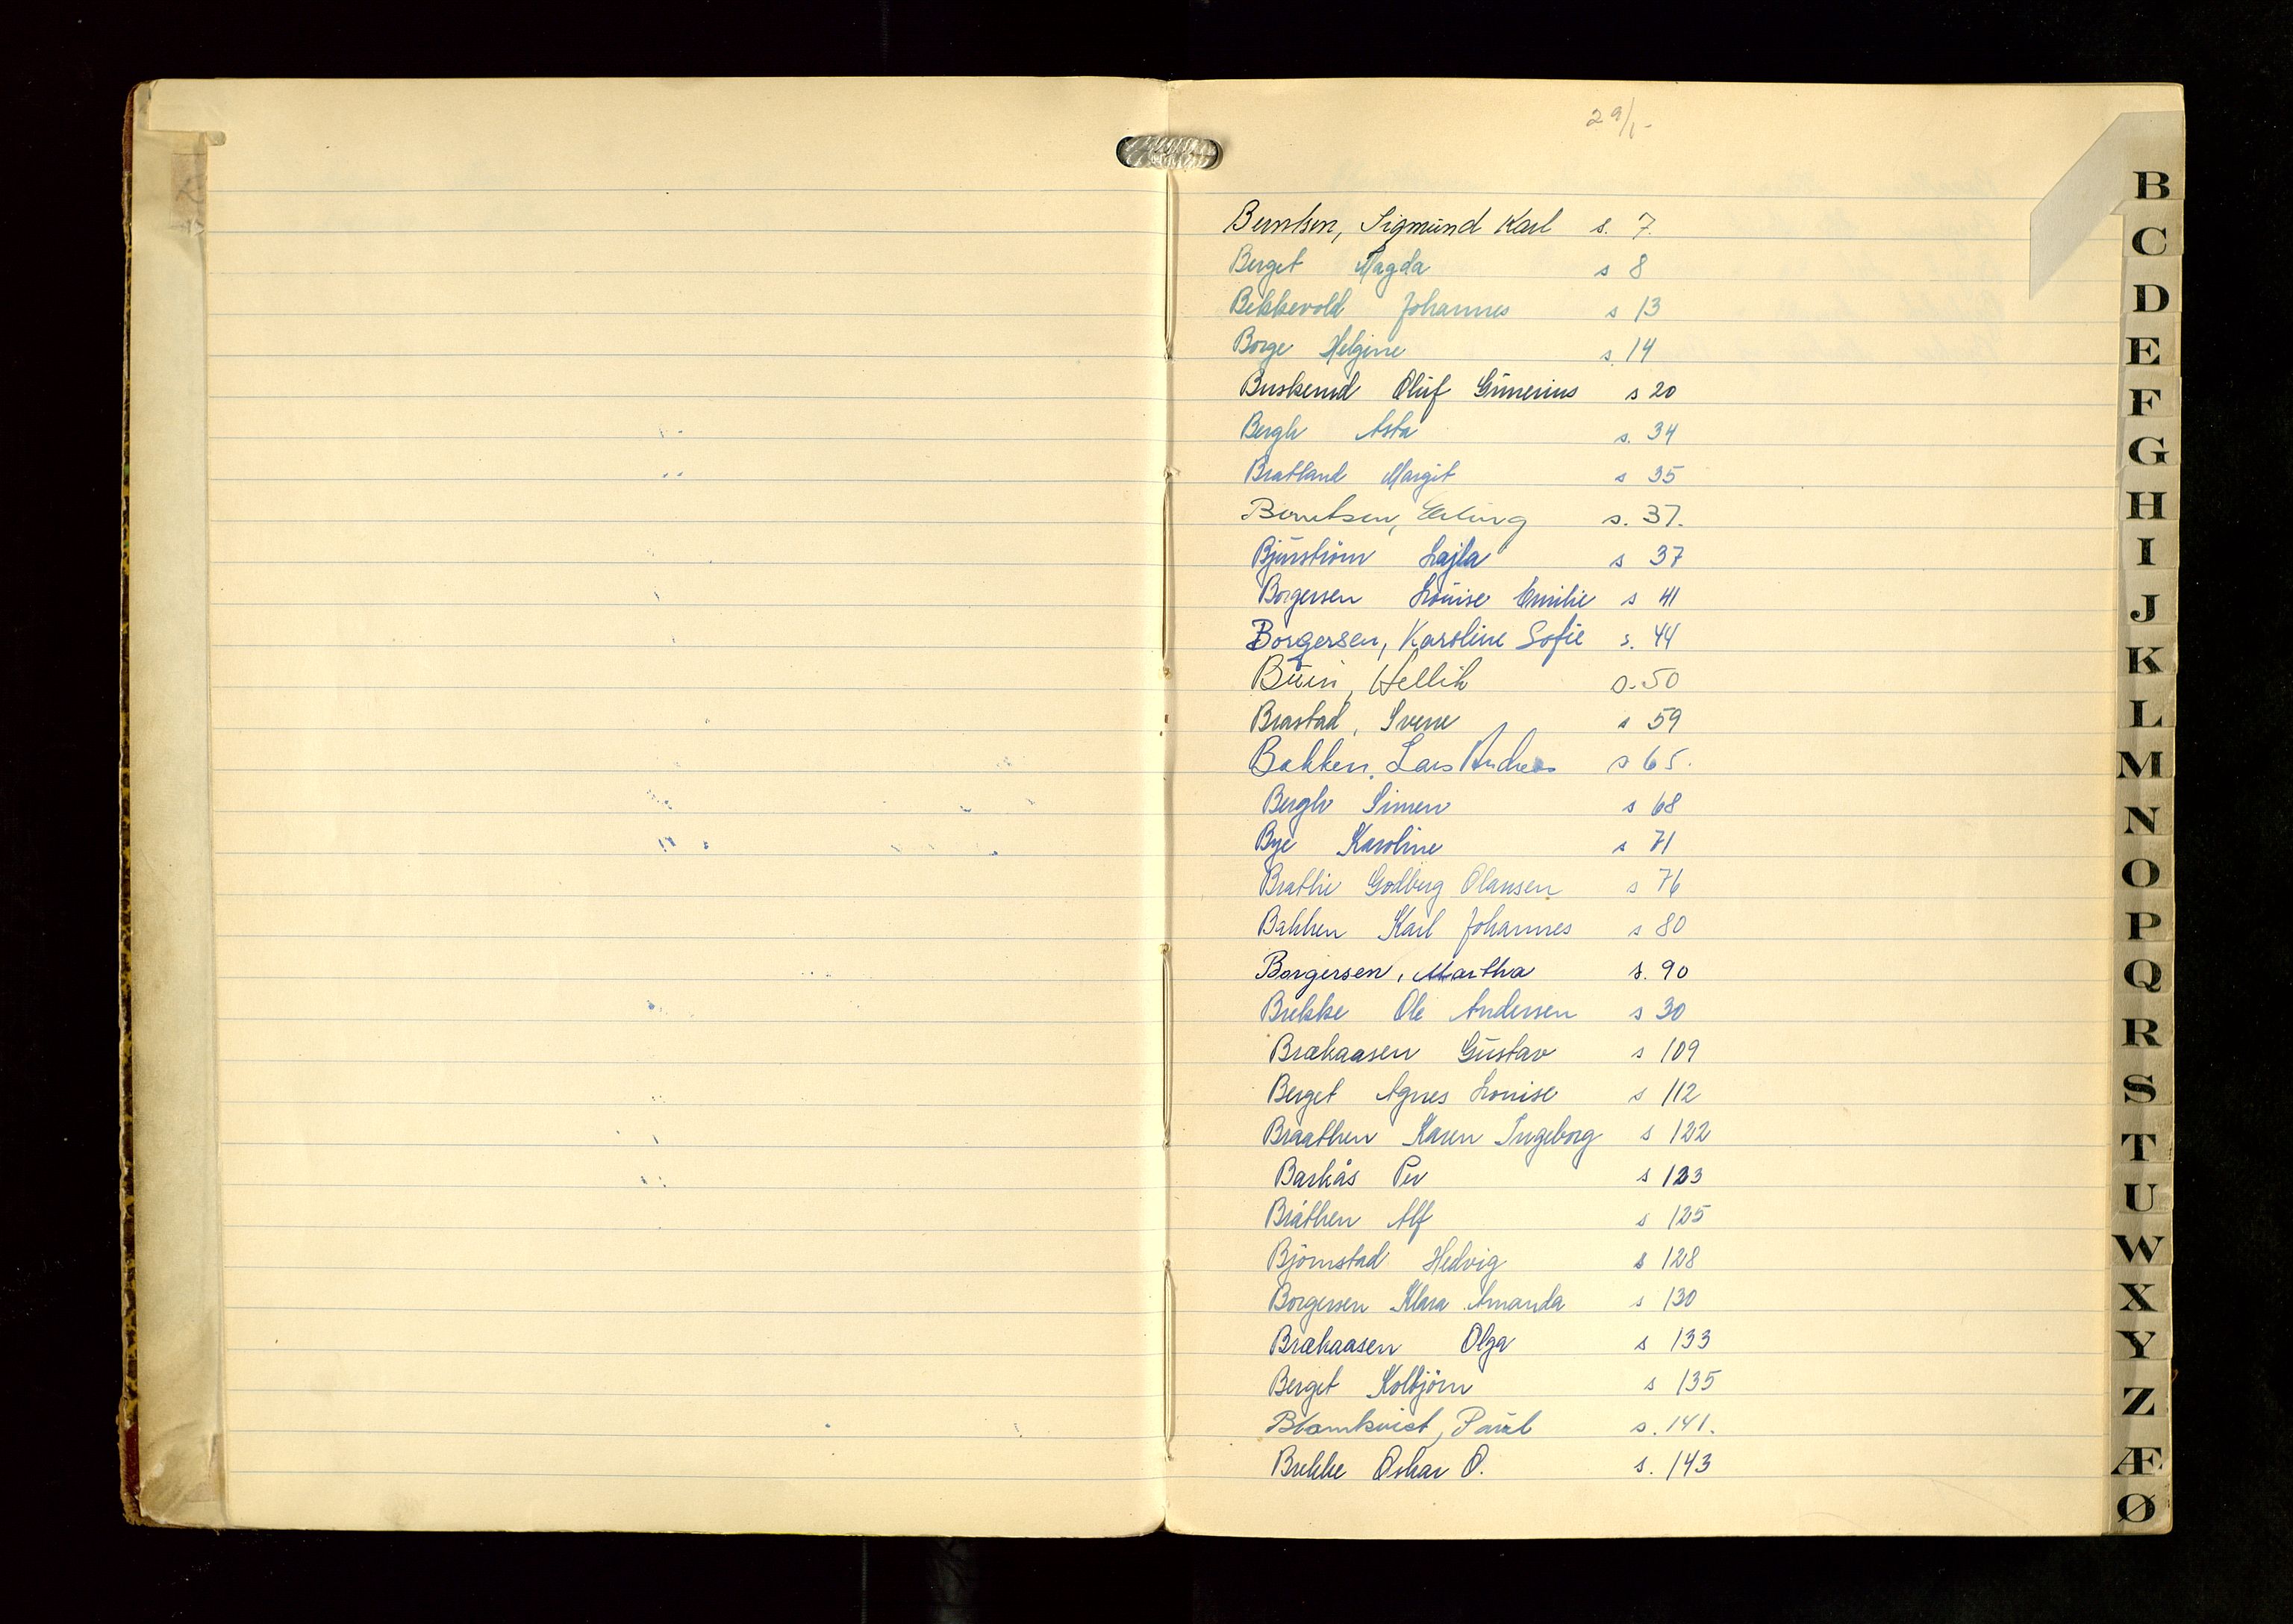 29/1-
Berntsen, Sigmund Karl s. 7.
Berget Magda s 8
Bekkevold Johannes s 13
Borge Helgine s. 14
Buskerud Oluf Gunerius s 20
Bergh Asta s. 34
Bratland Margit s 35
Berntsen, Erling s. 37.
Bjurström Lajla s 37
Borgersen Louise Emilie s 41
Borgersen, Karoline Sofie s. 44
Buin, Hellik s. 50
Brastad, Sverre s 59
Bakken, Lars Andreas s 65.
Bergh Simen s 68
Bye Karoline s 71
Brathe Godberg Olausen s 76
Bakken Karl Johannes s 80
Borgersen, Martha s. 90
Brekke Ole Andersen s 30
Brækaasen Gustav s 109
Berget Agnes Louise s 112
Braathen Karen Ingeborg s 122
Barkås Per s 123
Bråthen Alf s 125
Björnstad Hedvig s 128
Borgersen Klara Amanda s 130
Brækaasen Olga s 133
Berget Kolbjörn s 135
Blomkvist, Paul s. 141.
Brekke Oskar O. s. 143
B
C
D
E
F
G
H
I
J
K
L
M
N
O
P
Q
R
S
T
U
W
X
Y
Z
Æ
Ø